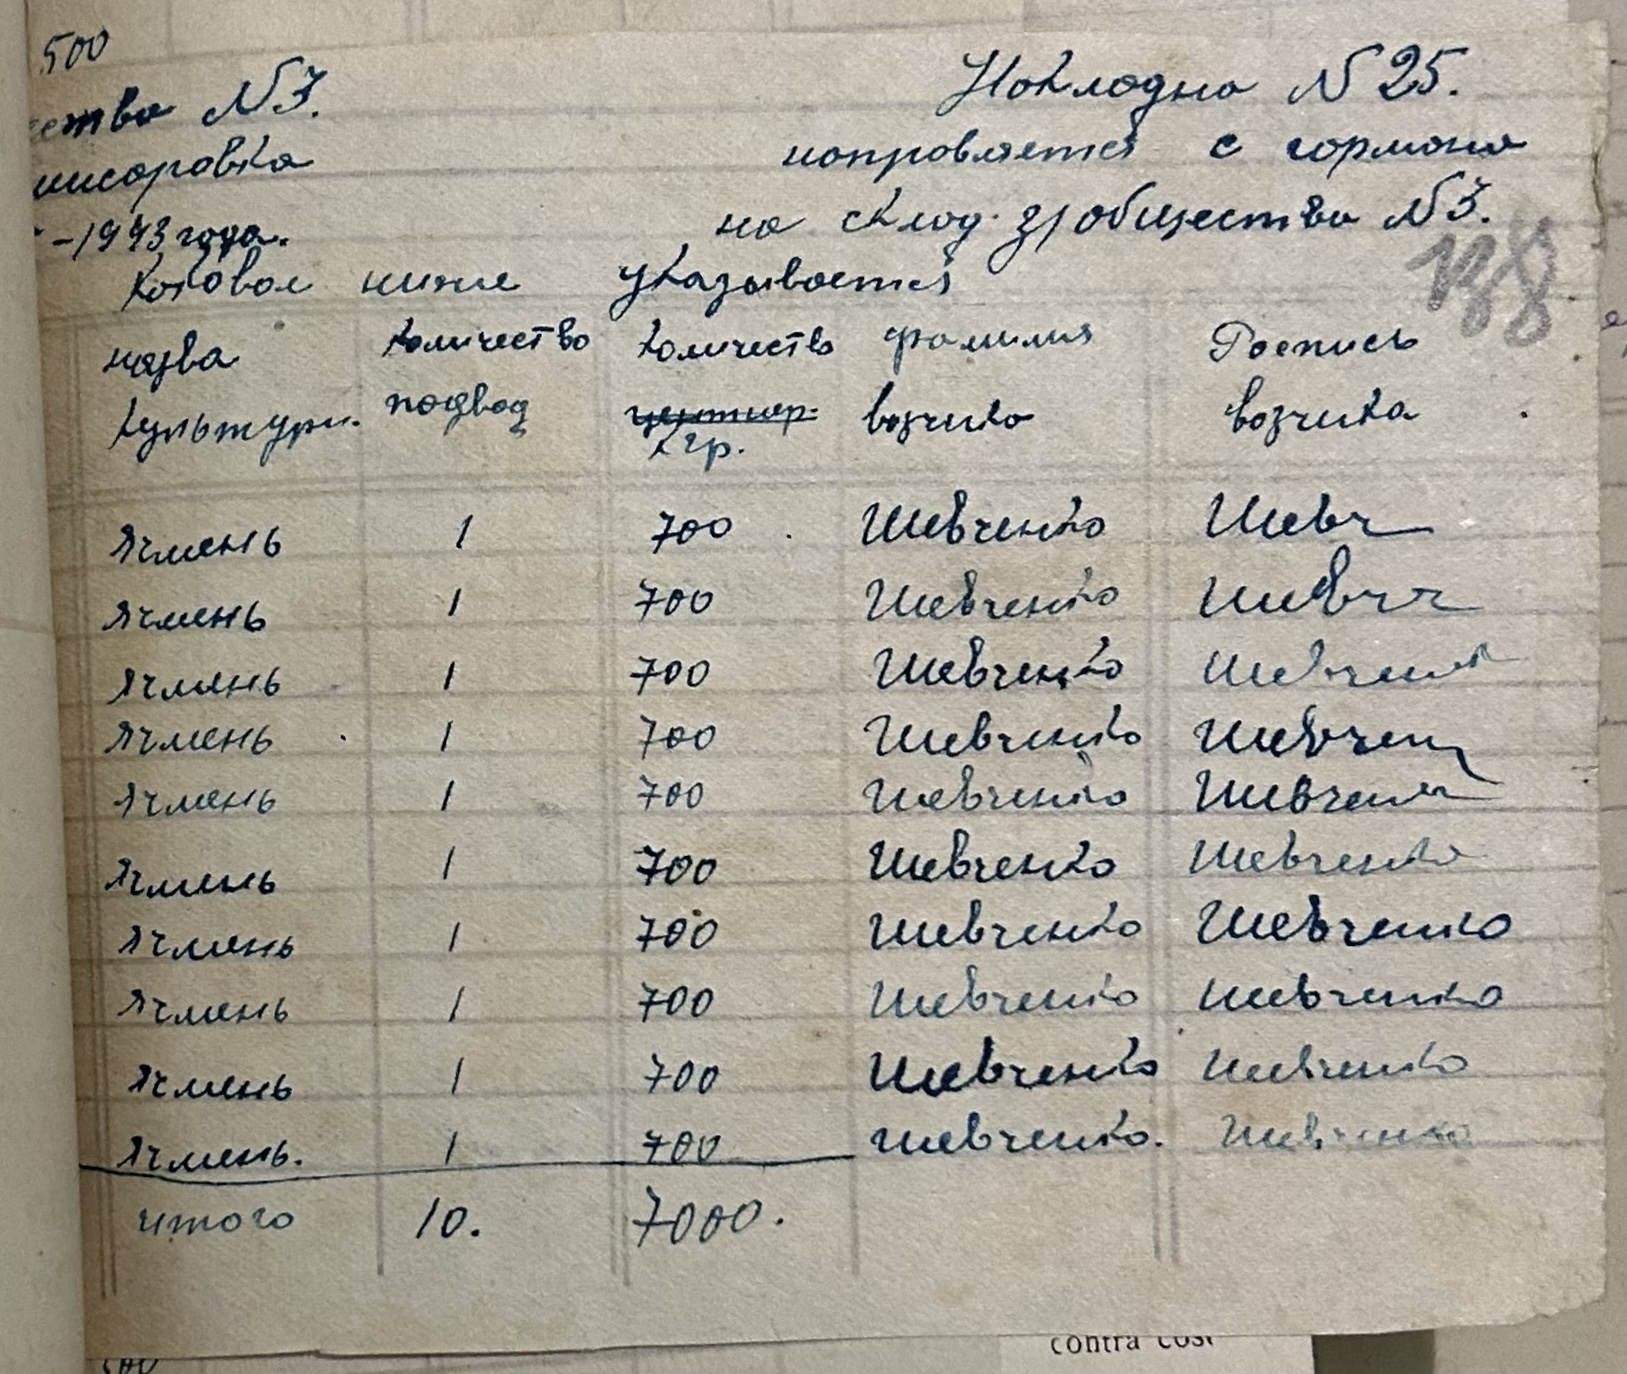 500
ества №3.
Накладна №25.
писаровка
направляется с гармана
-1943 года.
на склад з/общества №3.
138
Каковая ниже указывается
назва культури.
количество подвод
количество центнер. кгр.
фамилия возчика
Роспись возчика
Ячмень 1 700 Шевченко Шевч
Ячмень 1 700 Шевченко Шевчч
Ячмень 1 700 Шевченко Шевченк
Ячмень 1 700 Шевченко Шевчен
Ячмень 1 700 Шевченко Шевченк
Ячмень 1 700 Шевченко Шевченко
Ячмень 1 700 Шевченко Шевченко
Ячмень 1 700 Шевченко Шевченко
Ячмень 1 700 Шевченко Шевченко
Ячмень. 1 700 Шевченко. Шевченко
итого 10. 7000.
contra cost
500